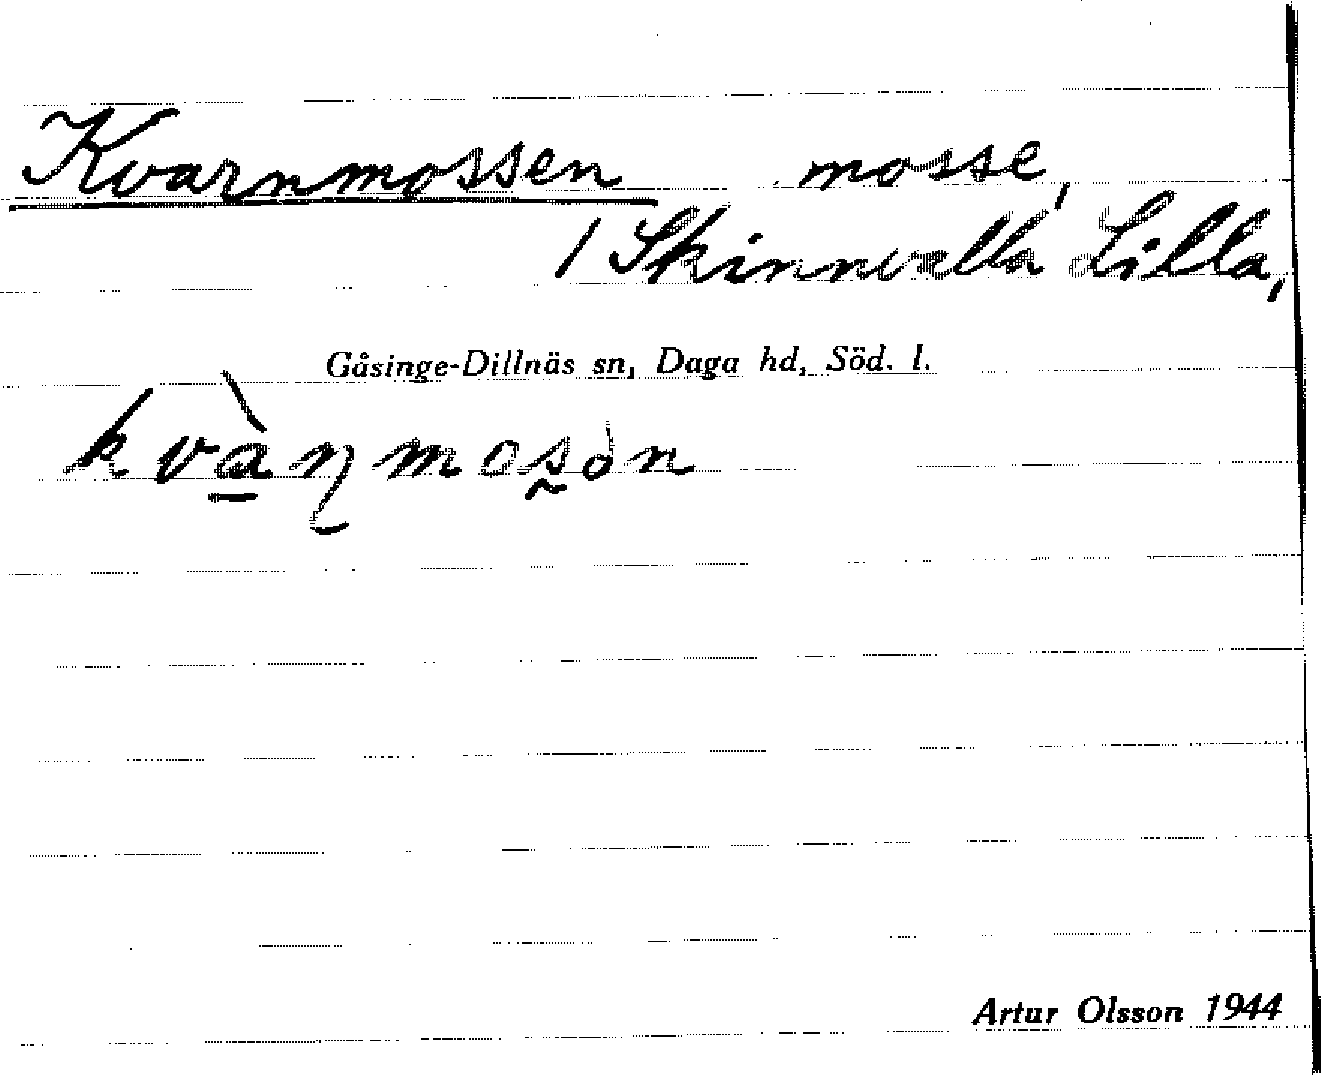 Kvarnmossen mosse,
/ Skinnvalla Lilla,
Gåsinge-Dillnäs sn, Daga hd, Söd. l.
kvàɳmosən
Artur Olsson 1944